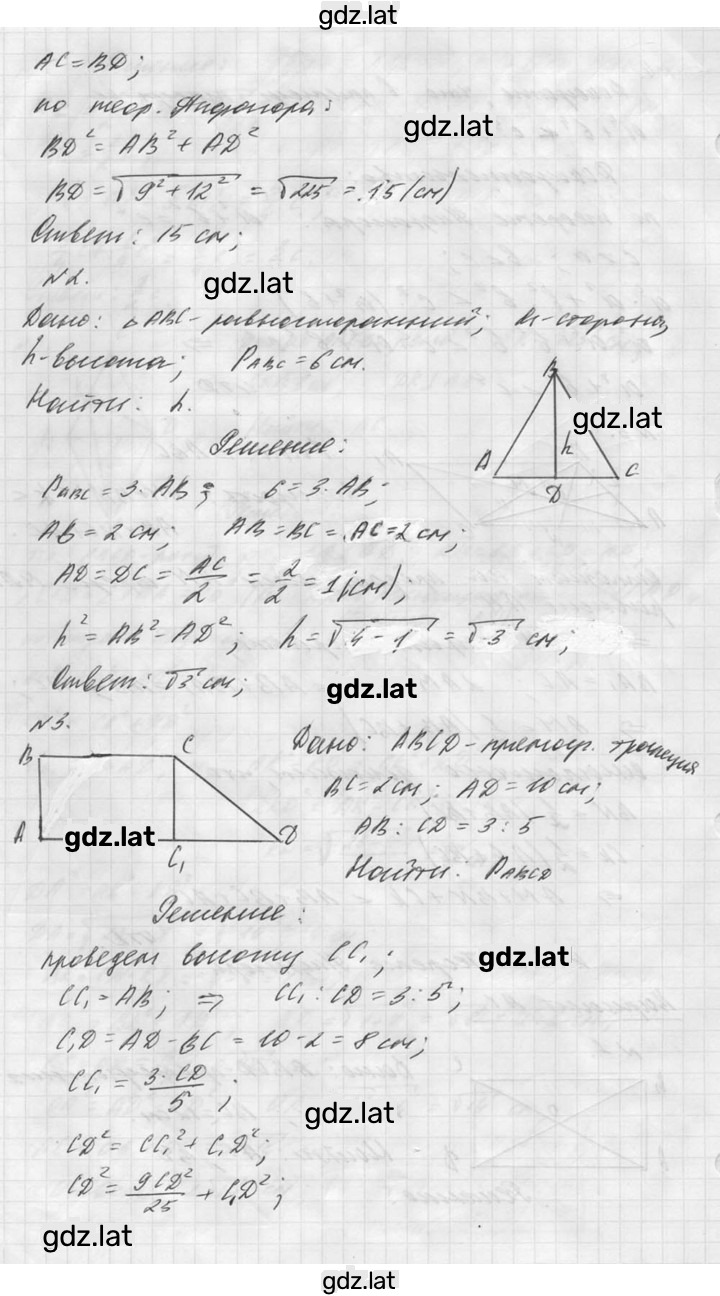 gdz.lat
AC = BD;
по теор. Пифагора:
gdz.lat
BD² = AB² + AD²
BD = √9² + 12² = √225 = 15 (см)
Ответ: 15 см;
N2.
gdz.lat
Дано: △ABC - равносторонний; a - сторона,
h - высота; PABC = 6 см.
Найти: h.
B
gdz.lat
h
A
C
D
Решение:
PABC = 3 · AB; 6 = 3 · AB;
AB = 2 см; AB = BC = AC = 2 см;
AD = DC = AC/2 = 2/2 = 1 (см),
h² = AB² - AD²; h = √4 - 1 = √3 см;
Ответ: √3 см;
gdz.lat
N3.
B
C
A
gdz.lat
D
C₁
Дано: ABCD - прямоуг. трапеция
BC = 2 см; AD = 10 см;
AB : CD = 3 : 5
Найти: PABCD
Решение:
проведем высоту CC₁;
gdz.lat
CC₁ = AB; ⇒ CC₁ : CD = 3 : 5;
C₁D = AD - BC = 10 - 2 = 8 см;
CC₁ = 3 · CD/5;
gdz.lat
CD² = CC₁² + C₁D²;
CD² = 9CD²/25 + C₁D²;
gdz.lat
gdz.lat